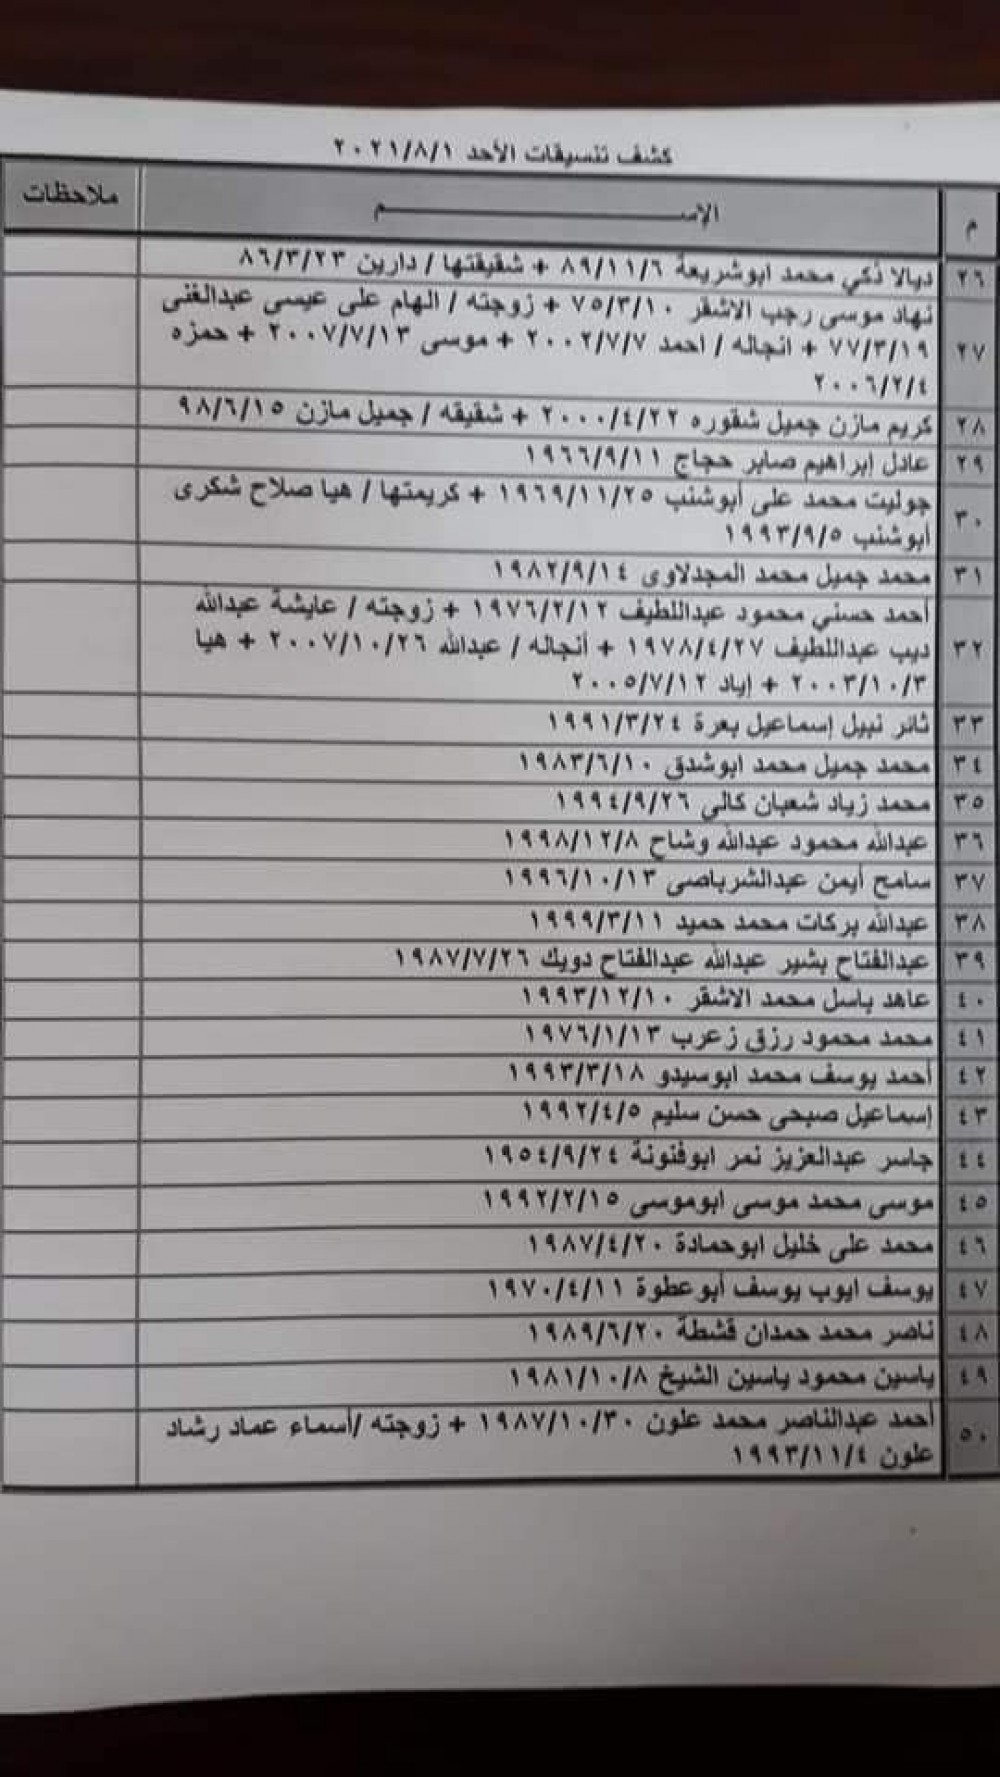 كشف تنسيقات الأحد ٢٠٢١/٨/١
م الإســـــــم ملاحظات
٢٦ ديالا ذكي محمد ابوشريعة ٨٩/١١/٦ + شقيقتها / دارين ٨٦/٣/٢٣
نهاد موسى رجب الاشقر ٧٥/٣/١٠ + زوجته / الهام على عيسى عبدالغنى
٢٧ ٧٧/٣/١٩ + انجاله / احمد ٢٠٠٢/٧/٧ + موسى ٢٠٠٧/٧/١٣ + حمزه
٢٠٠٦/٢/٤
٢٨ كريم مازن جميل شقوره ٢٠٠٠/٤/٢٢ + شقيقه / جميل مازن ٩٨/٦/١٥
٢٩ عادل إبراهيم صابر حجاج ١٩٦٦/٩/١١
٣٠ جوليت محمد على أبوشنب ١٩٦٩/١١/٢٥ + كريمتها / هيا صلاح شكرى
أبوشنب ١٩٩٣/٩/٥
٣١ محمد جميل محمد المجدلاوى ١٩٨٢/٩/١٤
أحمد حسني محمود عبداللطيف ١٩٧٦/٢/١٢ + زوجته / عايشة عبدالله
٣٢ ديب عبداللطيف ١٩٧٨/٤/٢٧ + أنجاله / عبدالله ٢٠٠٧/١٠/٢٦ + هيا
٢٠٠٣/١٠/٣ + إياد ٢٠٠٥/٧/١٢
٣٣ ثائر نبيل إسماعيل بعرة ١٩٩١/٣/٢٤
٣٤ محمد جميل محمد ابوشدق ١٩٨٣/٦/١٠
٣٥ محمد زياد شعبان كالى ١٩٩٤/٩/٢٦
٣٦ عبدالله محمود عبدالله وشاح ١٩٩٨/١٢/٨
٣٧ سامح أيمن عبدالشرباصى ١٩٩٦/١٠/١٣
٣٨ عبدالله بركات محمد حميد ١٩٩٩/٣/١١
٣٩ عبدالفتاح بشير عبدالله عبدالفتاح دويك ١٩٨٧/٧/٢٦
٤٠ عاهد باسل محمد الاشقر ١٩٩٣/١٢/١٠
٤١ محمد محمود رزق زعرب ١٩٧٦/١/١٣
٤٢ أحمد يوسف محمد ابوسيدو ١٩٩٣/٣/١٨
٤٣ إسماعيل صبحى حسن سليم ١٩٩٢/٤/٥
٤٤ جاسر عبدالعزيز نمر ابوفنونة ١٩٥٤/٩/٢٤
٤٥ موسى محمد موسى ابوموسى ١٩٩٢/٢/١٥
٤٦ محمد على خليل ابوحمادة ١٩٨٧/٤/٢٠
٤٧ يوسف ايوب يوسف أبوعطوة ١٩٧٠/٤/١١
٤٨ ناصر محمد حمدان قشطة ١٩٨٩/٦/٢٠
٤٩ ياسين محمود ياسين الشيخ ١٩٨١/١٠/٨
٥٠ أحمد عبدالناصر محمد علون ١٩٨٧/١٠/٣٠ + زوجته /أسماء عماد رشاد
علون ١٩٩٣/١١/٤